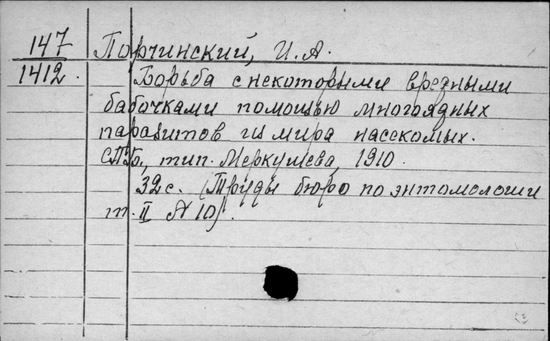 147 Порчинский, И. А.
1412. Борьба с некоторыми вредными
бабочками помощью многоядных
паразитов из мира насекомых.
СПб, тип. Меркушева, 1910.
32 с. (Труды бюро по энтомологии
т. II № 10).